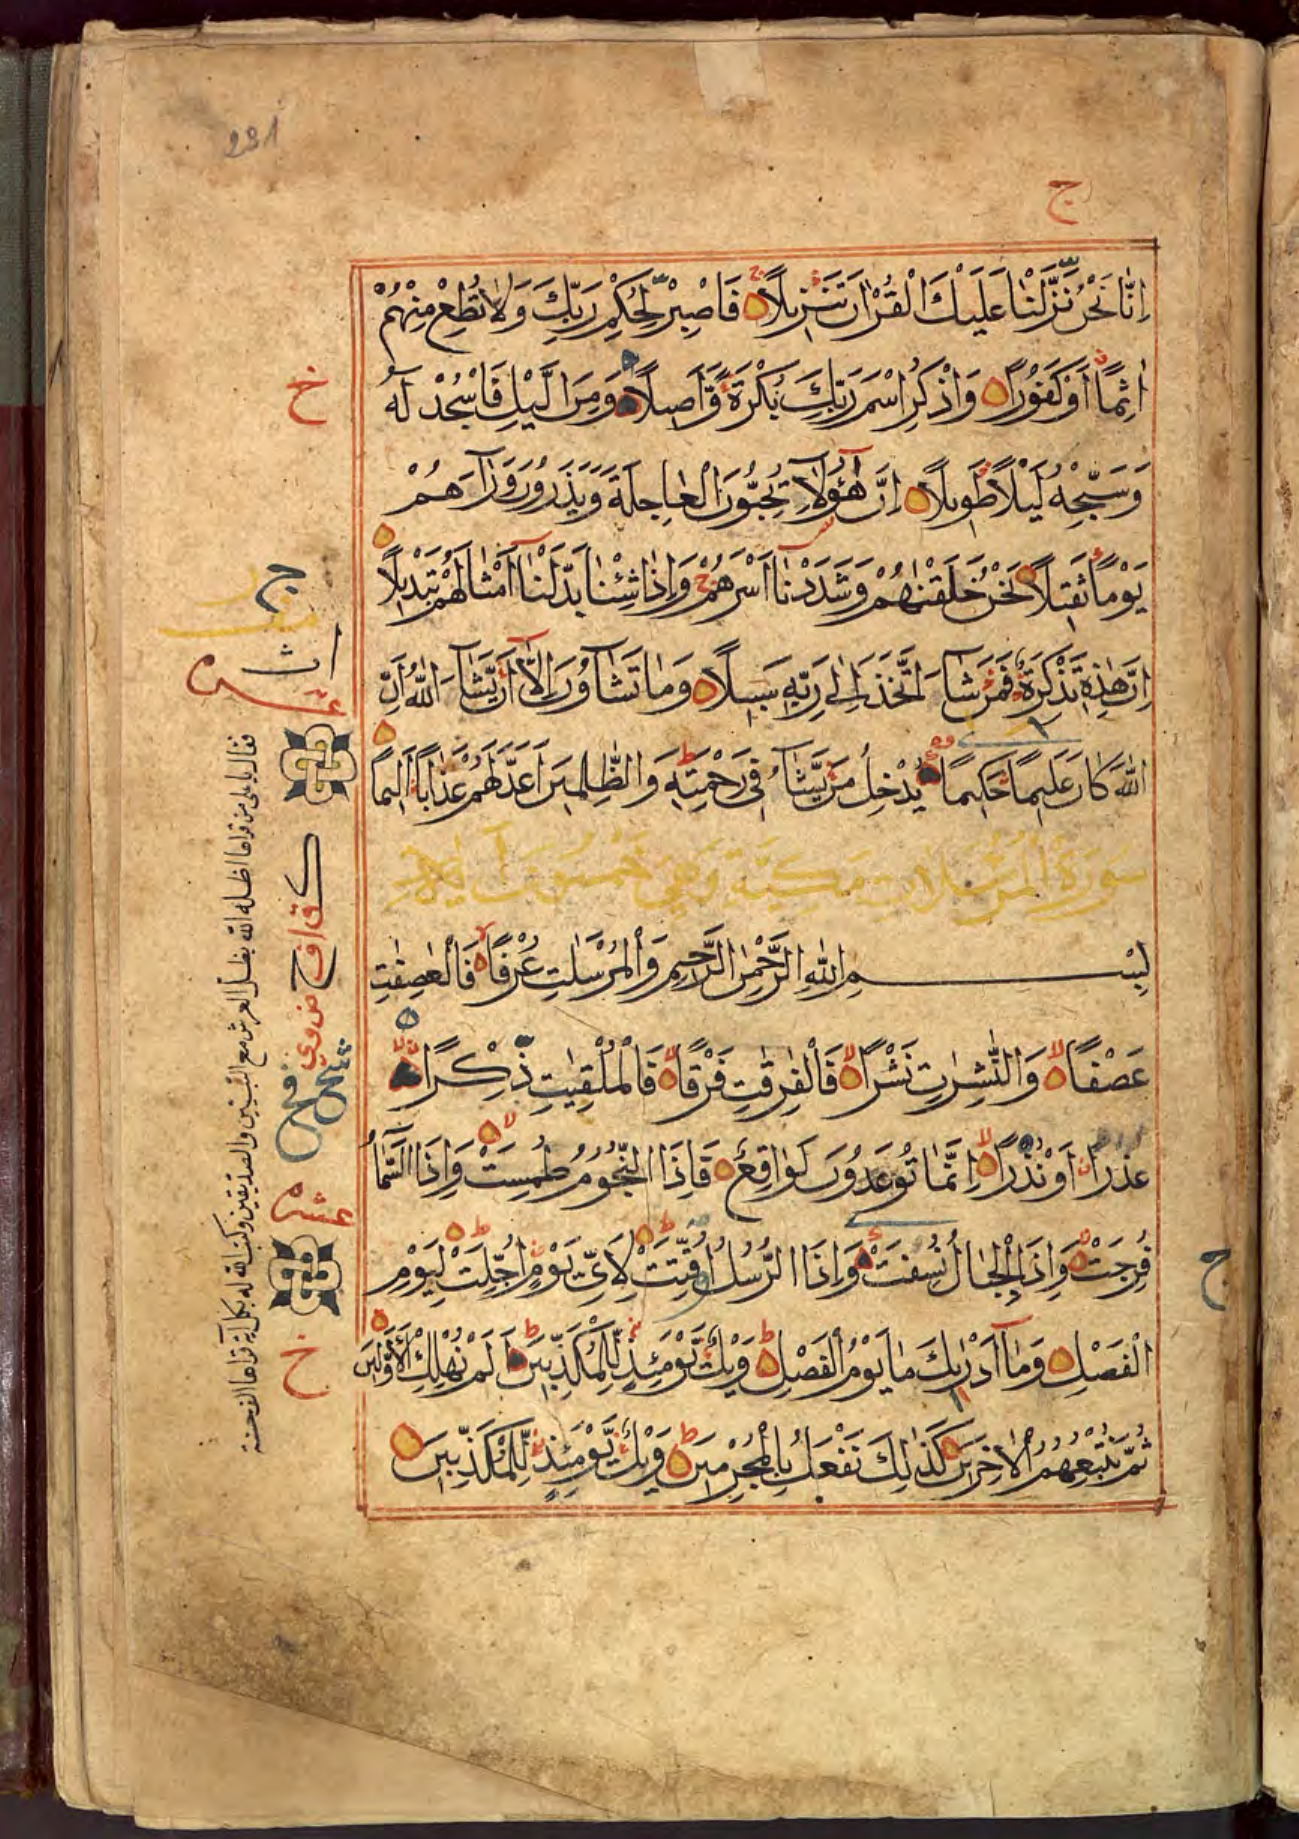 231
ج
اِنَّا نَحْنُ نَزَّلْنَا عَلَيْكَ الْقُرْاٰنَ تَنْزِيْلًا فَاصْبِرْ لِحُكْمِ رَبِّكَ وَلَا تُطِعْ مِنْهُمْ
اٰثِمًا اَوْ كَفُوْرًا وَاذْكُرِ اسْمَ رَبِّكَ بُكْرَةً وَّاَصِيْلًا وَمِنَ الَّيْلِ فَاسْجُدْ لَهُ
وَسَبِّحْهُ لَيْلًا طَوِيْلًا اِنَّ هٰٓؤُلَآءِ يُحِبُّوْنَ الْعَاجِلَةَ وَيَذَرُوْنَ وَرَآءَهُمْ
يَوْمًا ثَقِيْلًا نَحْنُ خَلَقْنٰهُمْ وَشَدَدْنَآ اَسْرَهُمْ وَاِذَا شِئْنَا بَدَّلْنَآ اَمْثَالَهُمْ تَبْدِيْلًا
اِنَّ هٰذِهٖ تَذْكِرَةٌ فَمَنْ شَآءَ اتَّخَذَ اِلٰى رَبِّهٖ سَبِيْلًا وَمَا تَشَآؤُنَ اِلَّآ اَنْ يَّشَآءَ اللّٰهُ اِنَّ
اللّٰهَ كَانَ عَلِيْمًا حَكِيْمًا يُدْخِلُ مَنْ يَّشَآءُ فِيْ رَحْمَتِهٖ وَالظّٰلِمِيْنَ اَعَدَّ لَهُمْ عَذَابًا اَلِيْمًا
سورة المرسلات مكية وهي خمسون آية
بِسْمِ اللّٰهِ الرَّحْمٰنِ الرَّحِيْمِ وَالْمُرْسَلٰتِ عُرْفًا فَالْعٰصِفٰتِ
عَصْفًا وَالنّٰشِرٰتِ نَشْرًا فَالْفٰرِقٰتِ فَرْقًا فَالْمُلْقِيٰتِ ذِكْرًا
عُذْرًا اَوْ نُذْرًا اِنَّمَا تُوْعَدُوْنَ لَوَاقِعٌ فَاِذَا النُّجُوْمُ طُمِسَتْ وَاِذَا السَّمَآءُ
فُرِجَتْ وَاِذَا الْجِبَالُ نُسِفَتْ وَاِذَا الرُّسُلُ اُقِّتَتْ لِاَيِّ يَوْمٍ اُجِّلَتْ لِيَوْمِ
الْفَصْلِ وَمَآ اَدْرٰىكَ مَا يَوْمُ الْفَصْلِ وَيْلٌ يَّوْمَئِذٍ لِّلْمُكَذِّبِيْنَ اَلَمْ نُهْلِكِ الْاَوَّلِيْنَ
ثُمَّ نُتْبِعُهُمُ الْاٰخِرِيْنَ كَذٰلِكَ نَفْعَلُ بِالْمُجْرِمِيْنَ وَيْلٌ يَّوْمَئِذٍ لِّلْمُكَذِّبِيْنَ
خ
ج
عشر
عشره
خ
ج